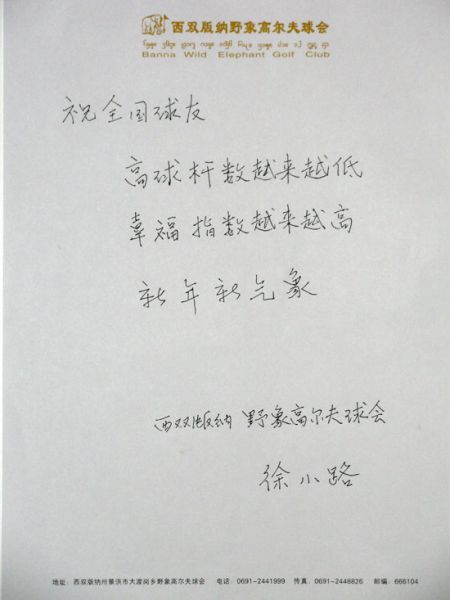 西双版纳野象高尔夫球会
Banna Wild Elephant Golf Club
祝全国球友
高球杆数越来越低
幸福指数越来越高
新年新气象
西双版纳 野象高尔夫球会
徐小路
地址：西双版纳州景洪市大渡岗乡野象高尔夫球会 电话：0691-2441999 传真：0691-2448826 邮编：666104